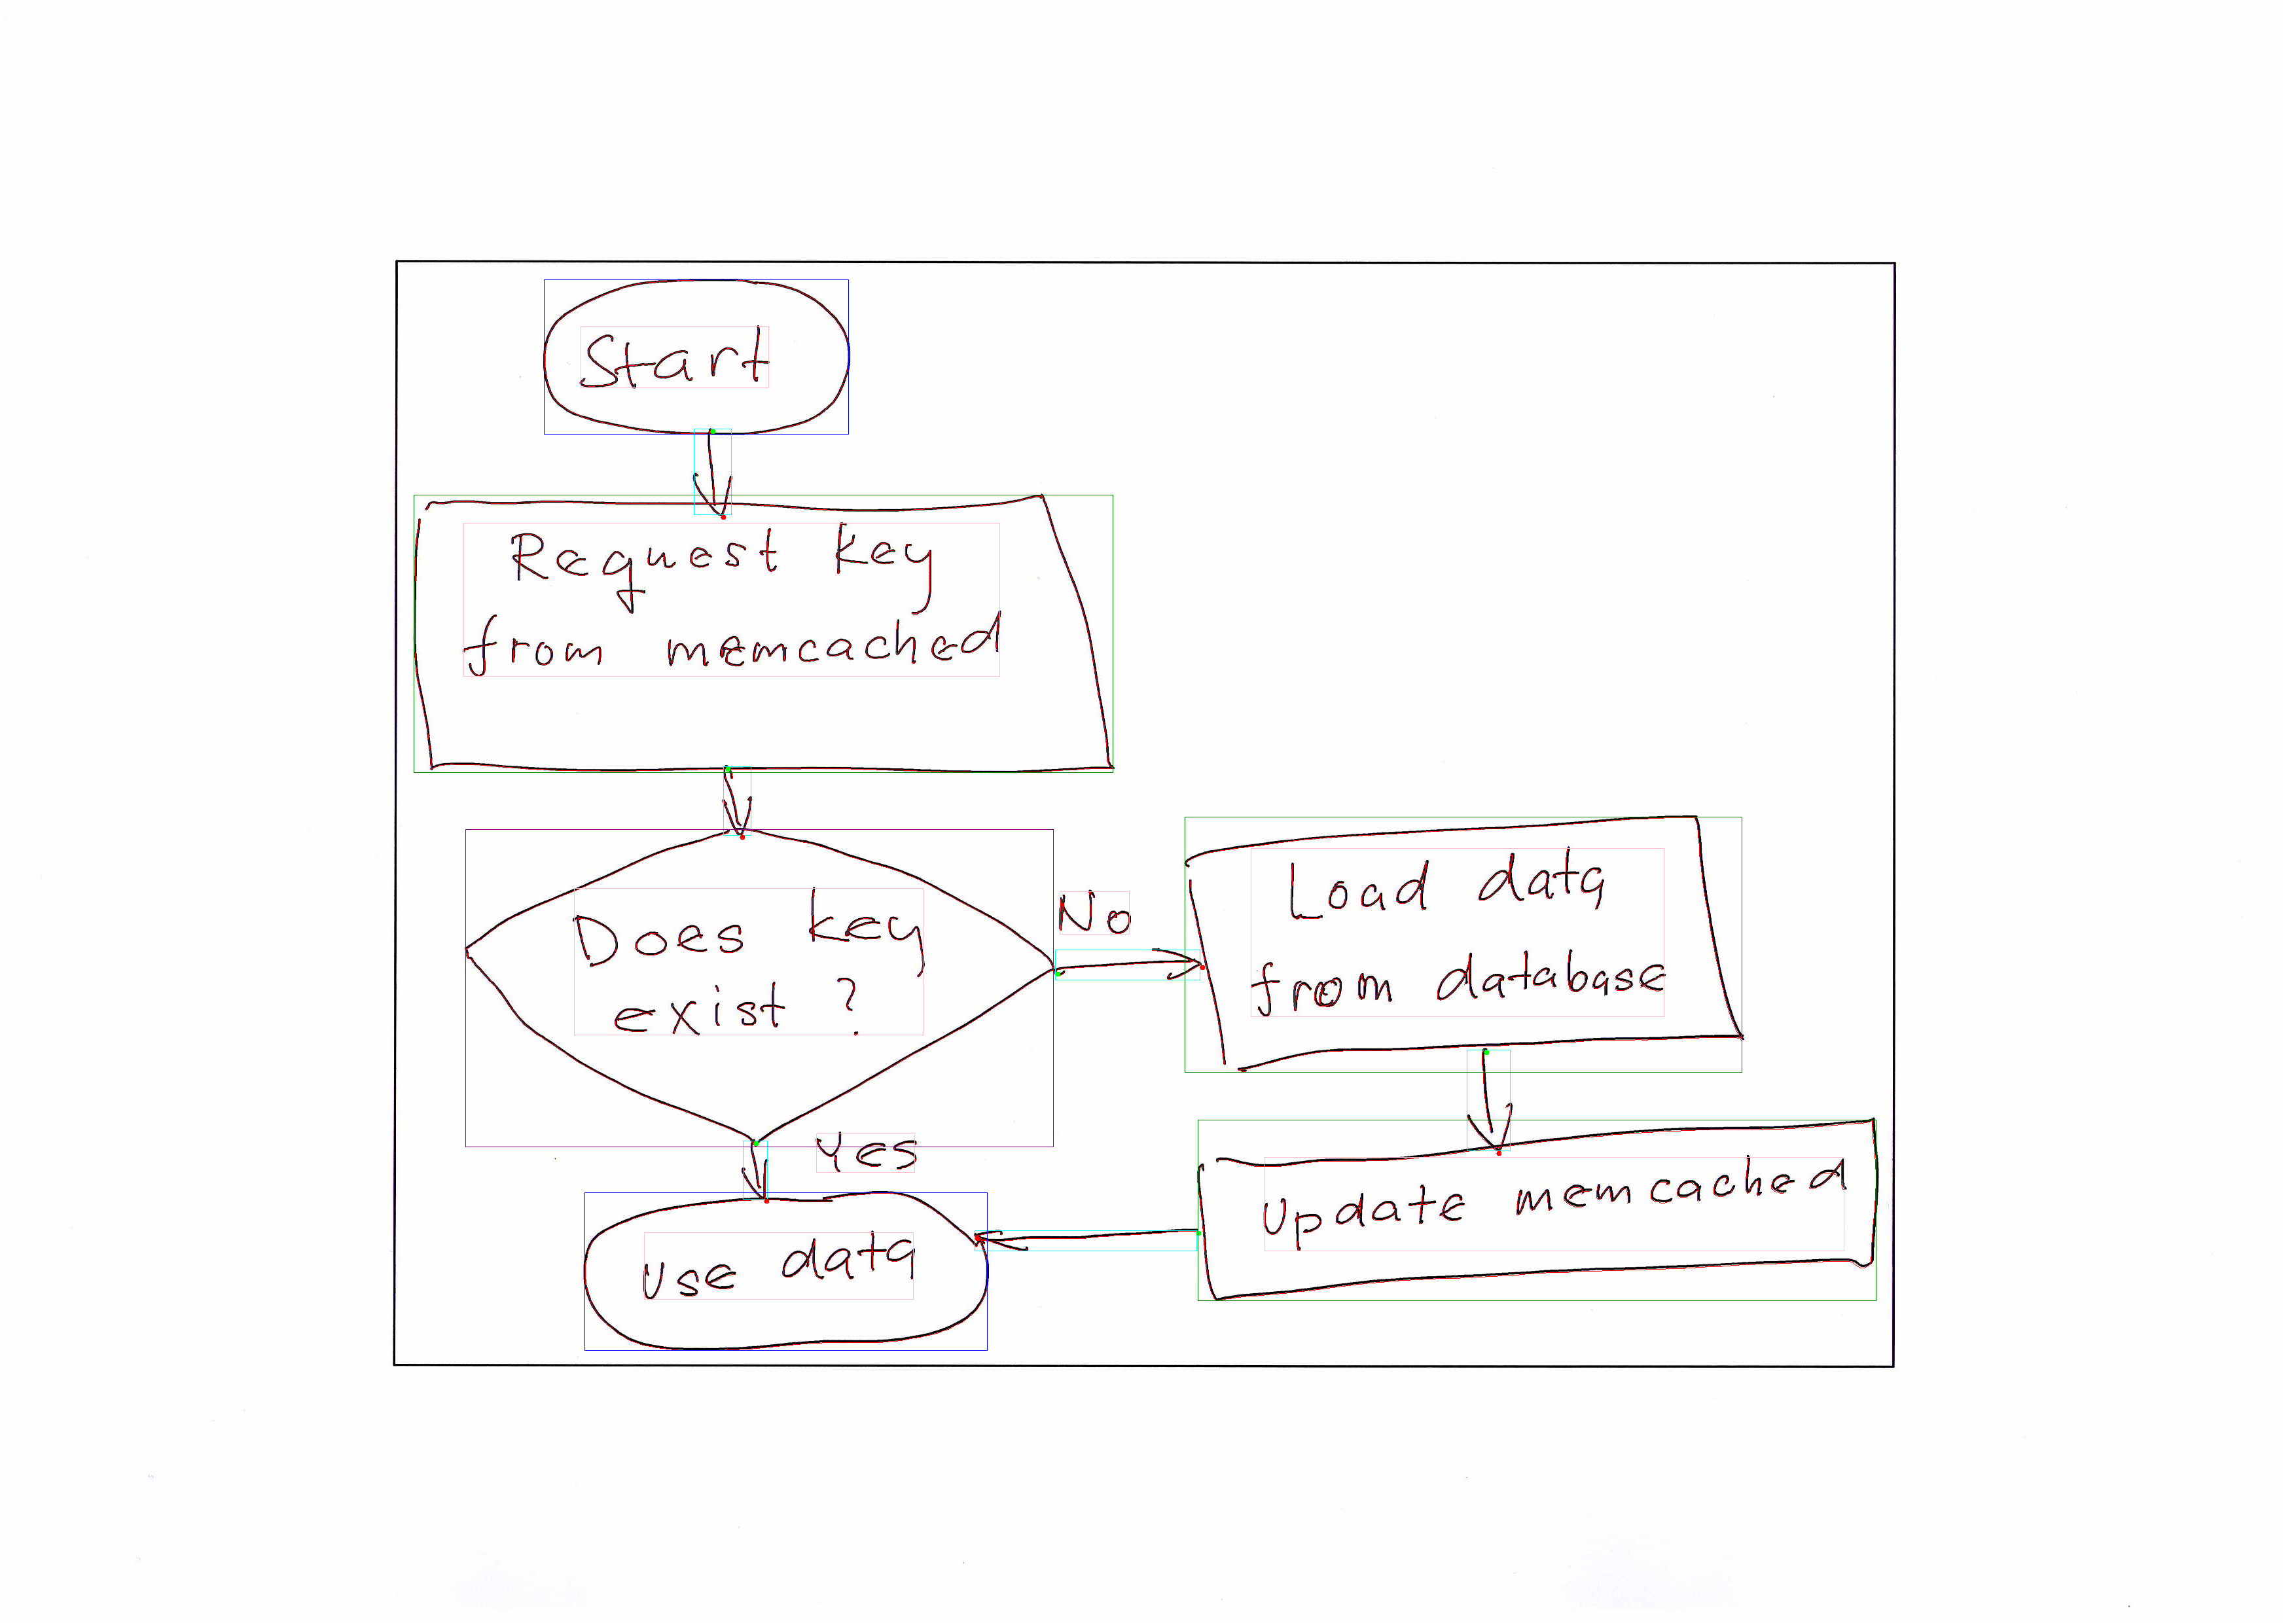 Start
Request key
from memcached
Does key
exist ?
No
Load data
from database
Yes
Update memcached
use data